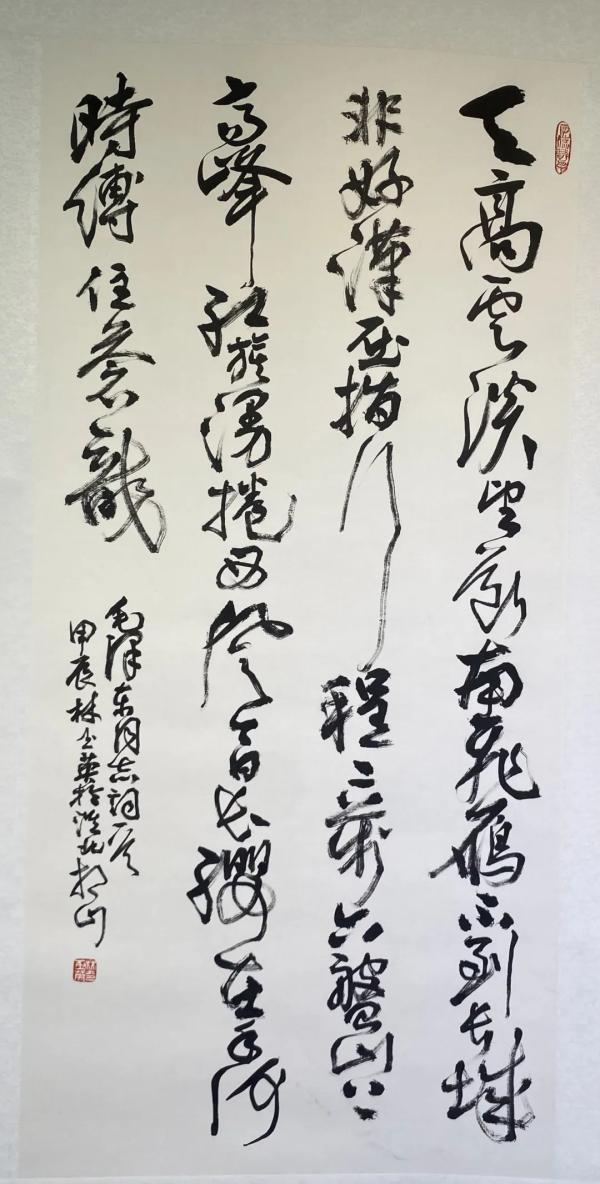 天高雲淡望斷南飛鴈不到長城
非好漢屈指行程二萬六盤山上
高峰紅旗漫捲西風今日長纓在手何
時縛住蒼龍
毛澤东同志詞一首
甲辰林英於淮北相山